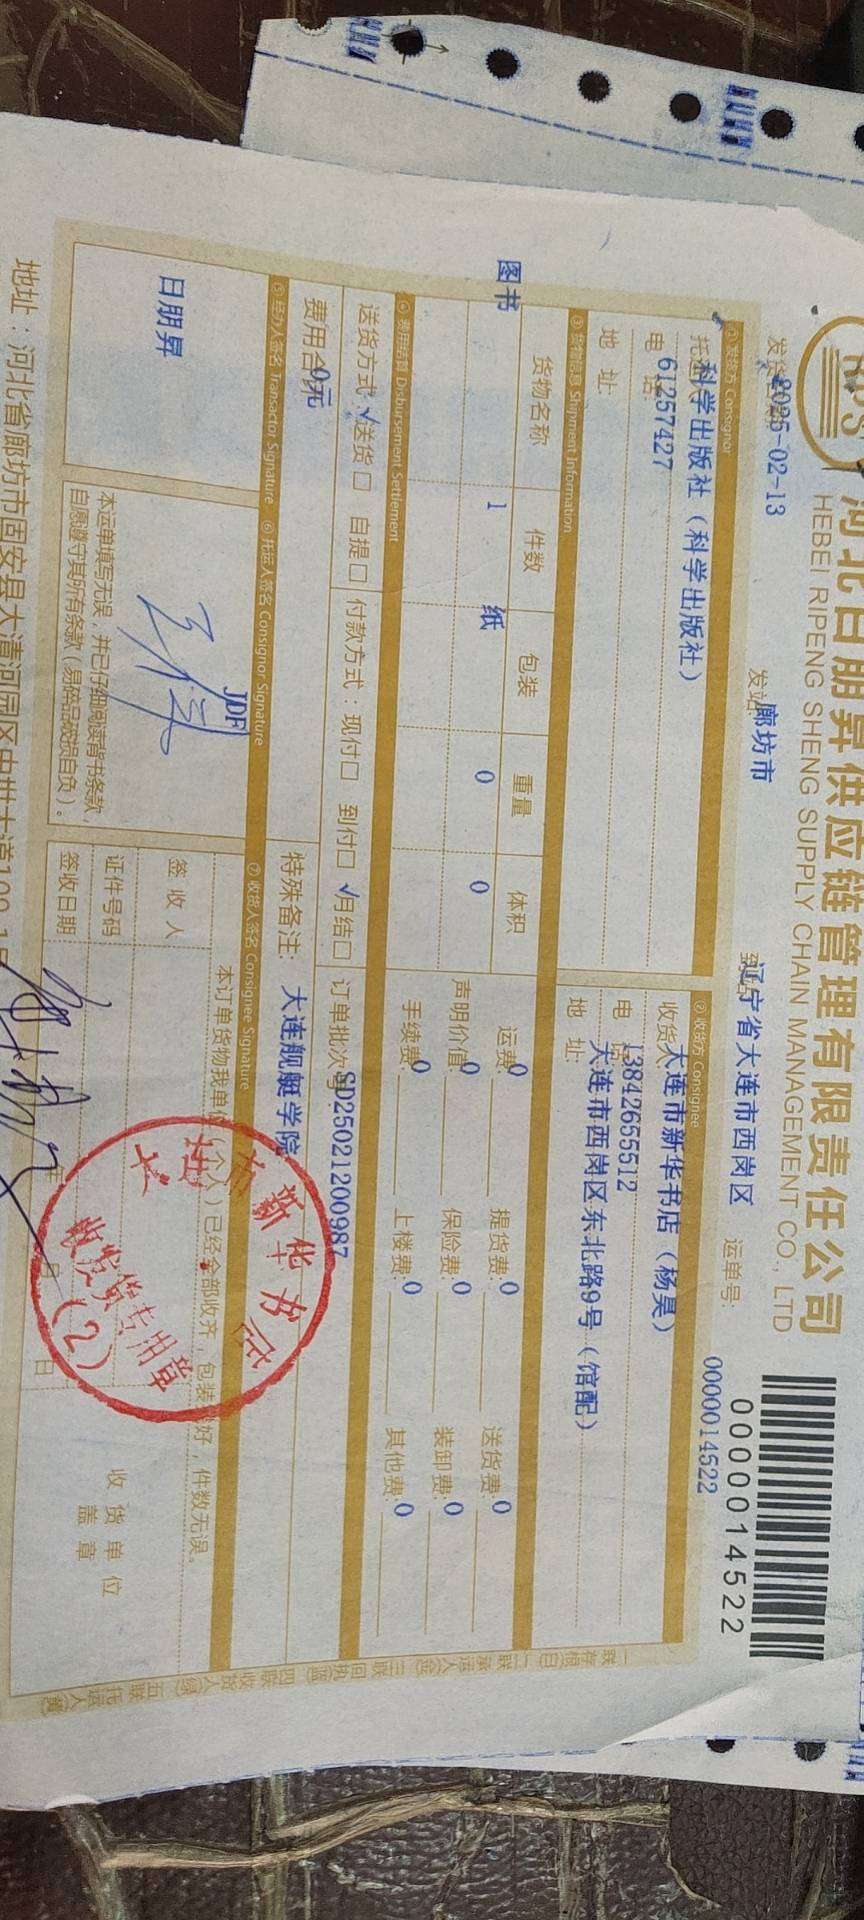 河北日朋昇供应链管理有限责任公司
HEBEI RIPENG SHENG SUPPLY CHAIN MANAGEMENT CO., LTD
0000014522
2025-02-13
发站
廊坊市
辽宁省大连市西岗区
运单号:
0000014522
① 发货方 Consignor
科学出版社（科学出版社）
电
61257427
地 址:
② 收货方 Consignee
收货
大连市新华书店（杨昊）
电
13842655512
地 址:
大连市西岗区东北路9号（馆配）
③ 货物信息 Shipment Information
货物名称 件数 包装 重量 体积
图书 1 纸 0 0
运费:0 提货费:0 送货费:0
声明价值:0 保险费:0 装卸费:0
手续费:0 上楼费:0 其他费:0
④ 费用结算 Disbursement Settlement
送货方式:√送货□ 自提□ 付款方式:现付□ 到付□ √月结□ 订单批次
SD25021200987
费用合
0元
特殊备注: 大连舰艇学院
⑤ 经办人签名 Transactor Signature ⑥ 托运人签名 Consignor Signature ⑦ 收货人签名 Consignee Signature
日朋昇
JDF
本运单填写无误，并已仔细阅读背书条款
自愿遵守其所有条款（易碎品破损自负）。
本订单货物我单位（个人）已经全部收齐，包装完好，件数无误。
签 收 人
证件号码
签收日期 年 月 日
收 货 单 位
盖 章
大连市新华书店
收发货专用章
(2)
一联存根(白) 二联承运人 三联回执(蓝) 四联收货人(绿) 五联托运人(黄)
地址：河北省廊坊市固安县大清河园区中世大道109-1